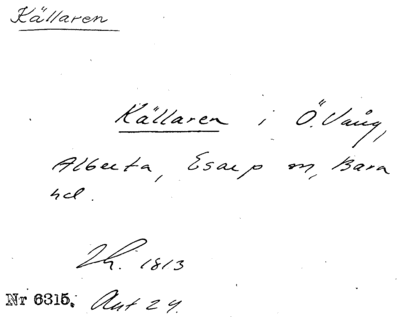 Källaren
Källaren i Ö. Vång,
Alberta, Esarp m, Bara
hd.
1813
Nr 6315. Ant 24.